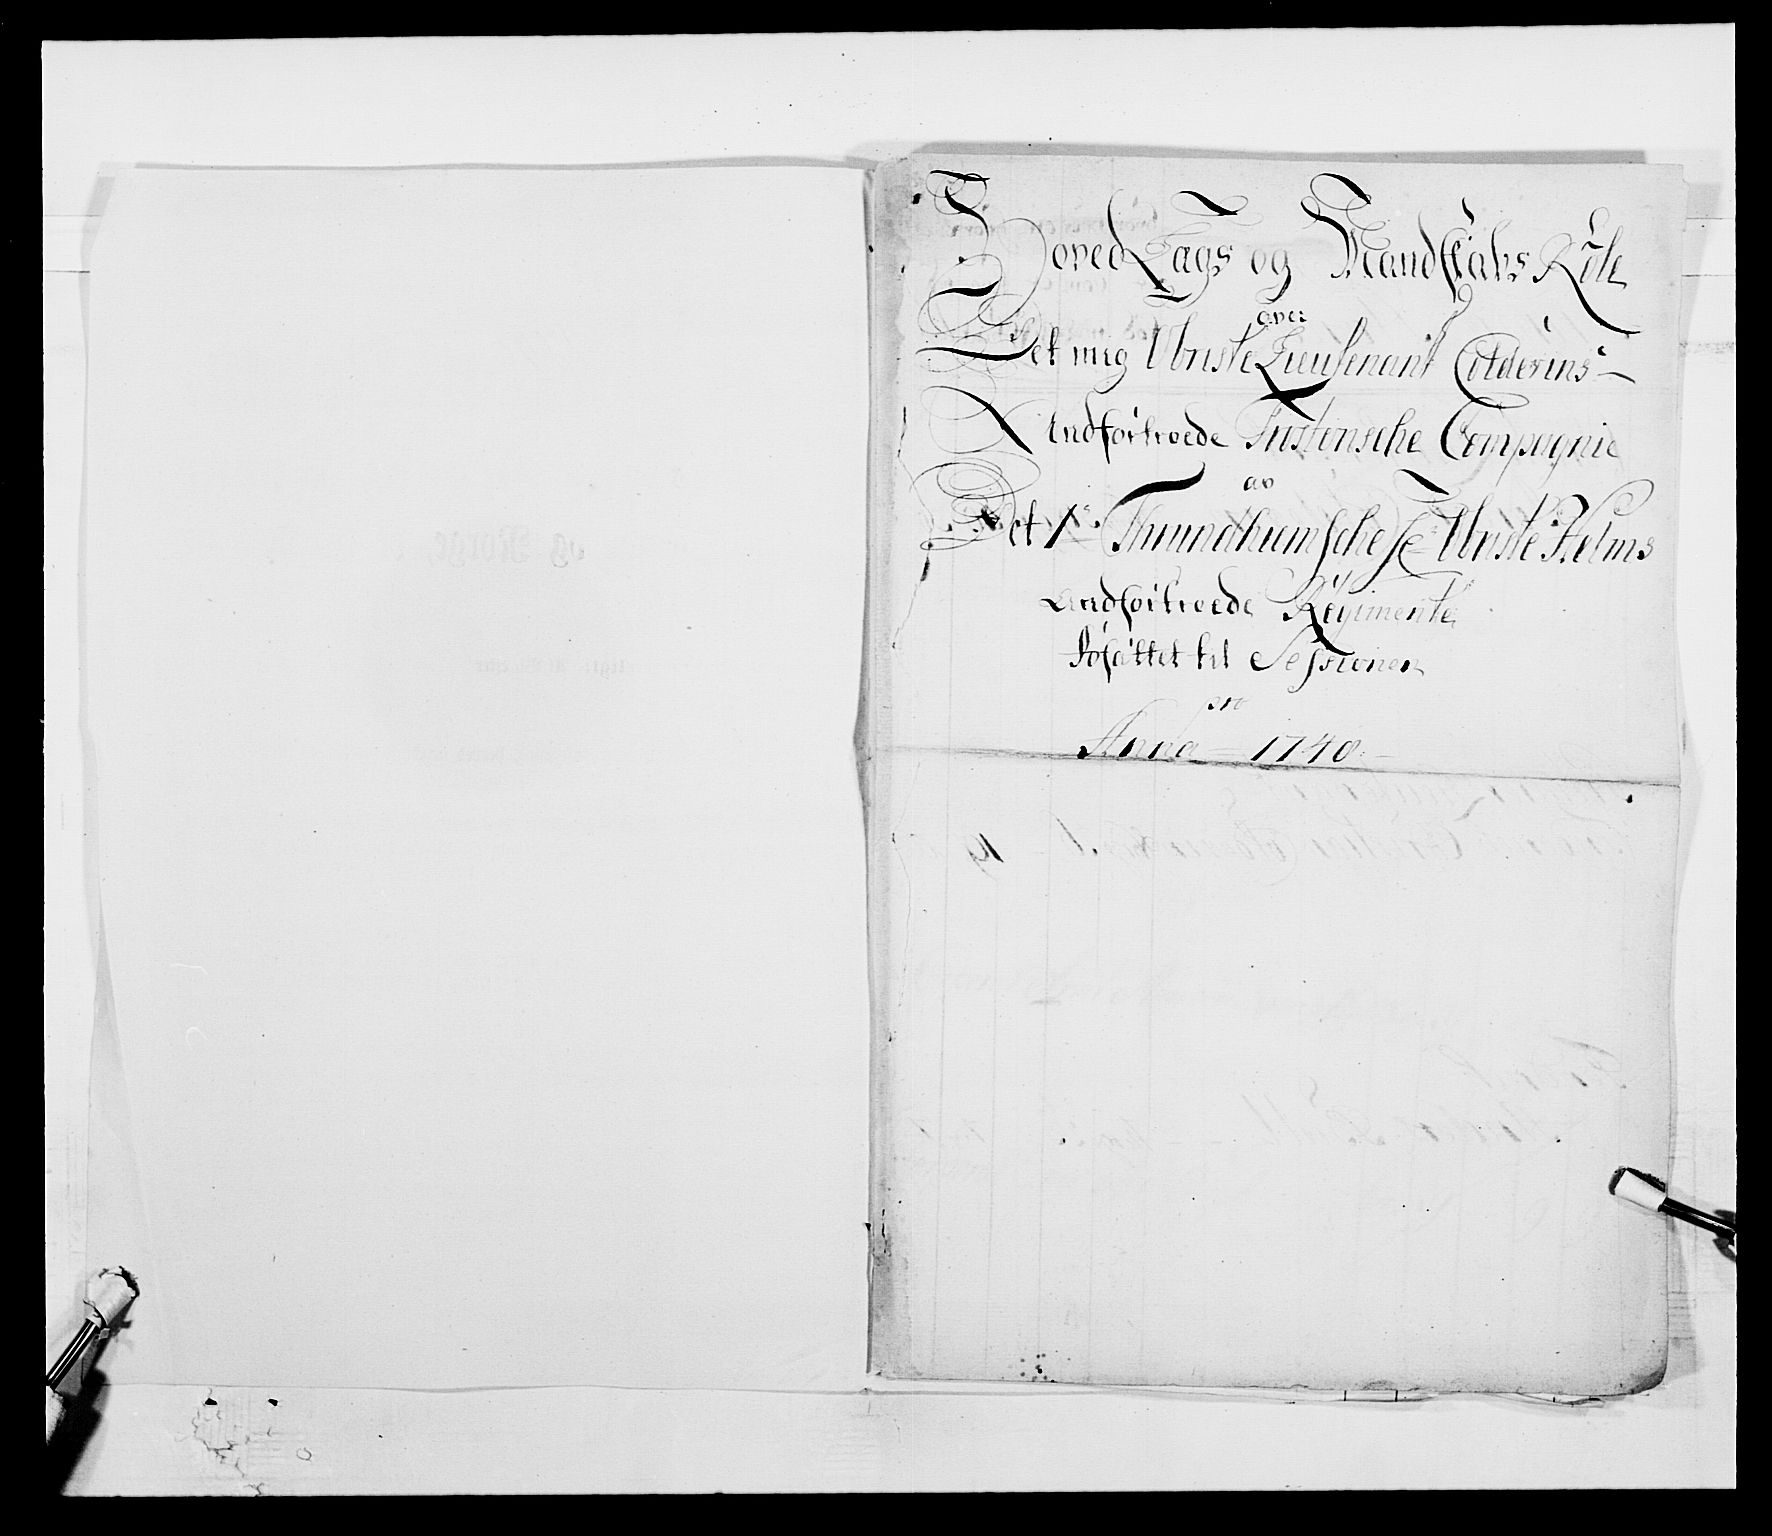 Hoved Lags og Mandskabs Rolle
over
Det mig Obriste Lieutenant Colderins
Andfortroede Fustensche Compagnie
av
Det 1te Thrundhiemsche Sr Obriste Helms
Andfortroede Regimente
Forfattet til Sessionen
pro
Anno 1740